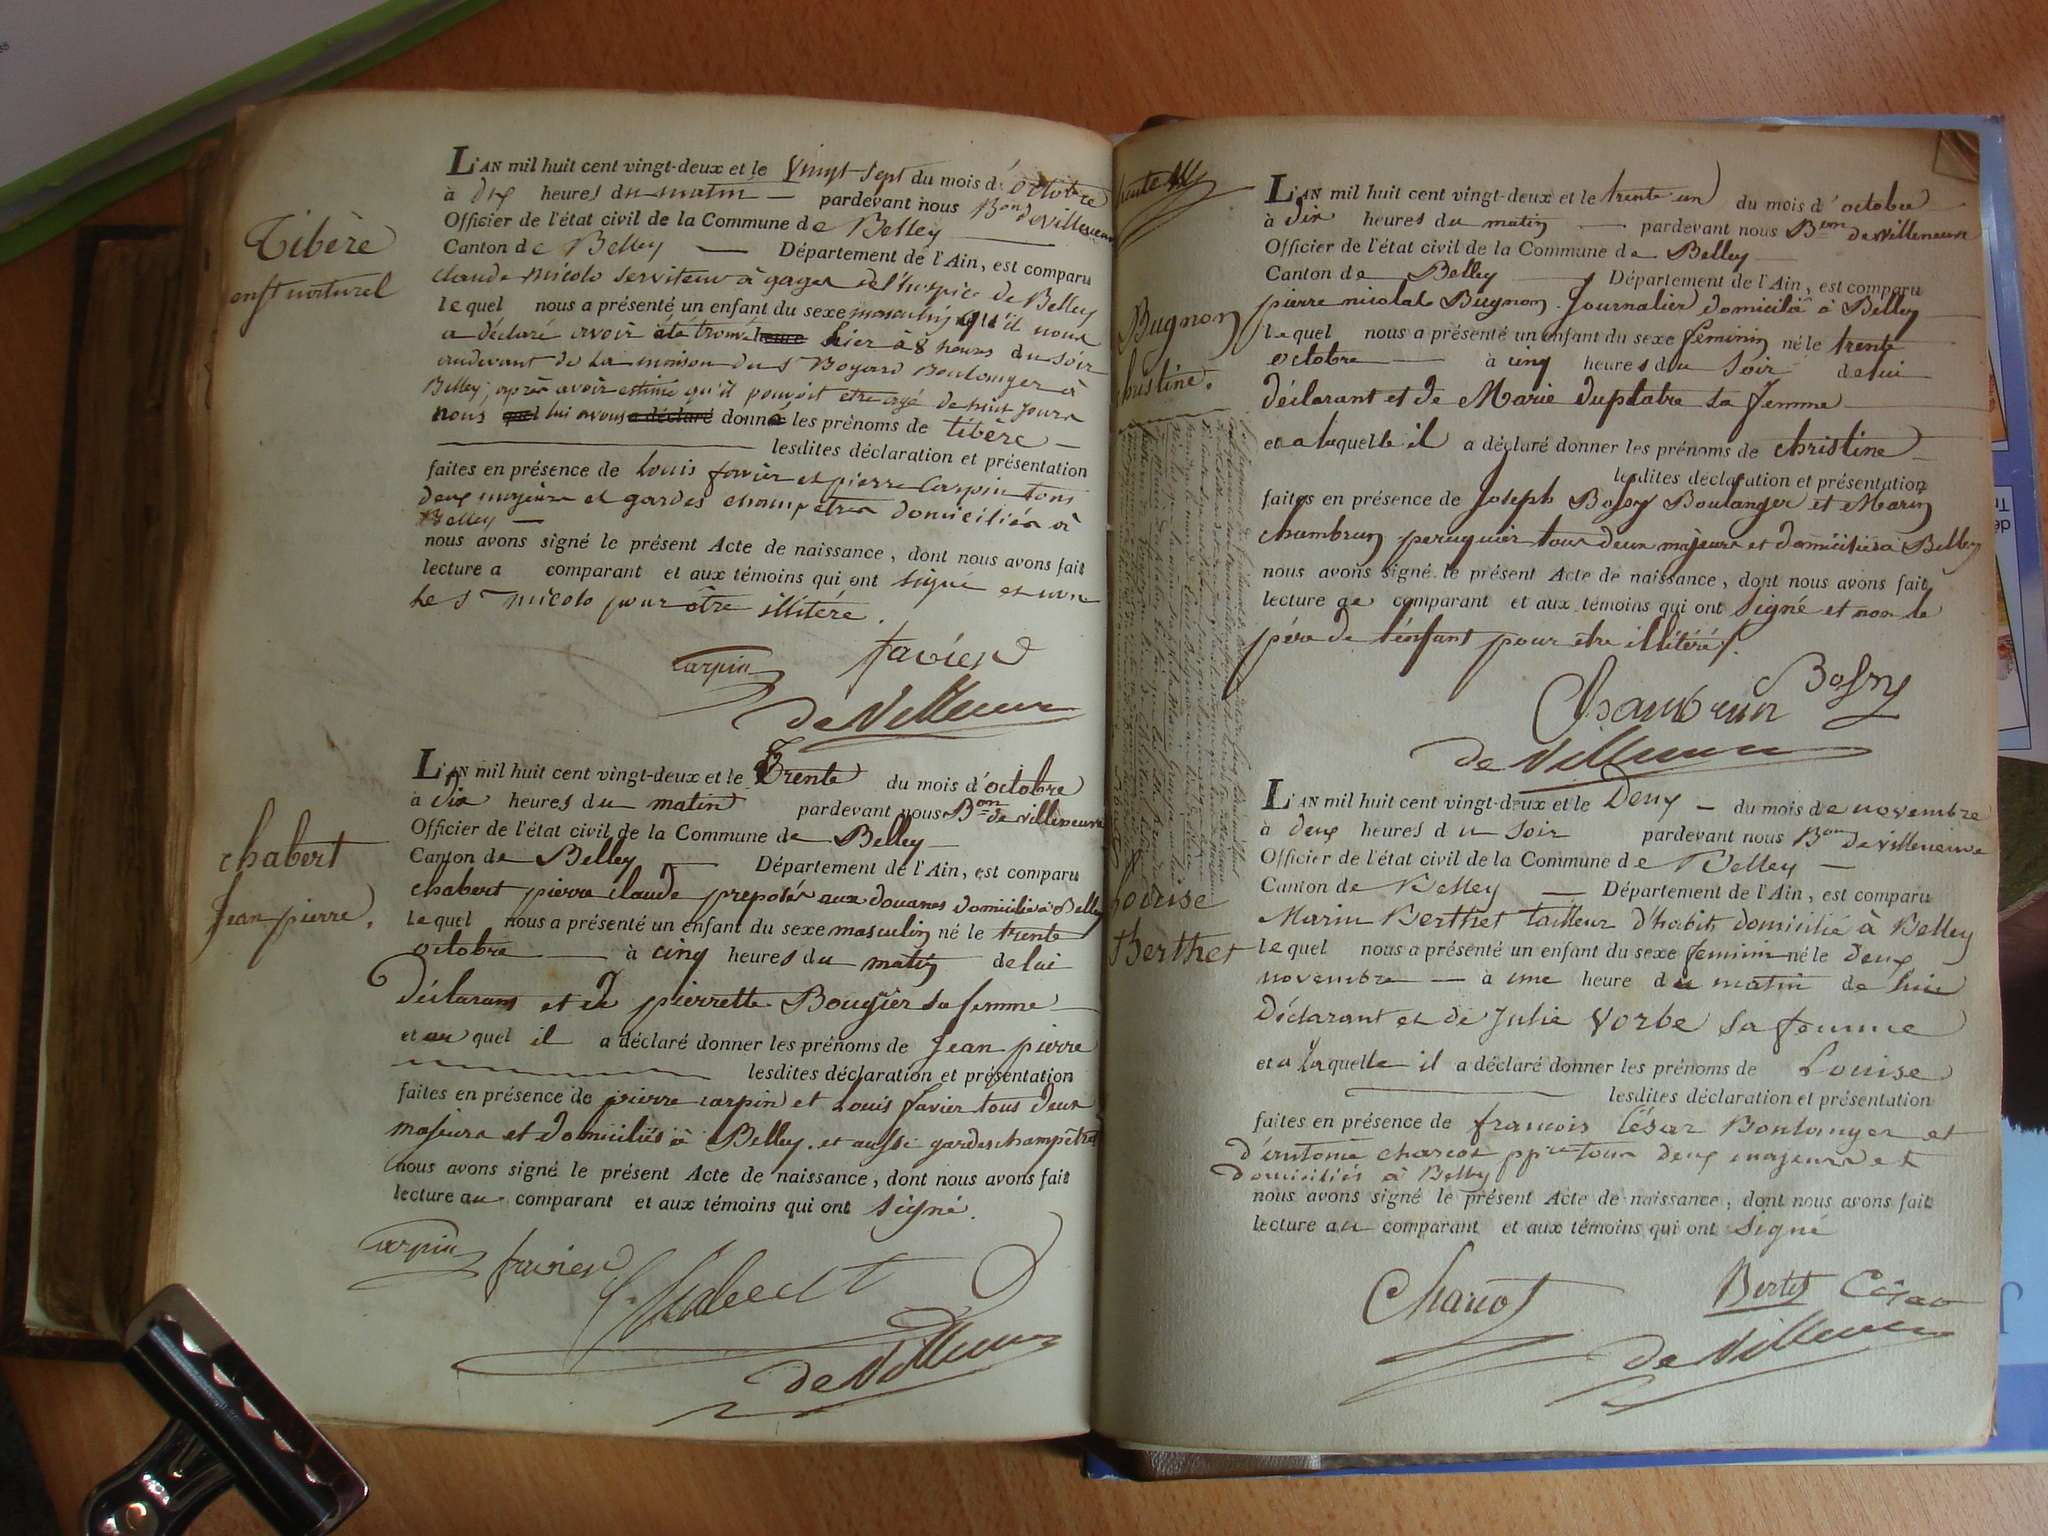 Tibère
enft naturel
L'AN mil huit cent vingt-deux et le Vingt sept du mois d'octobre
à dix heures du matin — pardevant nous Bon de Villeneuve
Officier de l'état civil de la Commune de Belley
Canton de Belley — Département de l'Ain, est comparu
Claude Nicolo serviteur à gages de l'hospice de Belley
lequel nous a présenté un enfant du sexe masculin qu'il nous
a déclaré avoir été trouvé heure hier à 8 heures du soir
audevant de la maison du Sr Boyard Boulanger à
Belley; après avoir estimé qu'il pouvoit etre agé de huit jours
nous quel lui avons a déclaré donné les prénoms de tibère —
lesdites déclaration et présentation
faites en présence de Louis favier et pierre Carpin tous
deux majeurs et gardes champêtres domiciliés à
Belley —
nous avons signé le présent Acte de naissance, dont nous avons fait
lecture a comparant et aux témoins qui ont signé et non
le Sr Nicolo pour être illitéré.
Carpin favier
de Villeneuve
chabert
Jean pierre.
L'AN mil huit cent vingt-deux et le Trente du mois d'octobre
à dix heures du matin pardevant nous Bon de Villeneuve
Officier de l'état civil de la Commune de Belley —
Canton de Belley — Département de l'Ain, est comparu
chabert pierre claude preposés aux douanes domicilié à Belley
lequel nous a présenté un enfant du sexe masculin né le trente
octobre — à cinq heures du matin de lui
Déclarant et de pierrette Bougier sa femme —
et au quel il a déclaré donner les prénoms de Jean pierre
lesdites déclaration et présentation
faites en présence de pierre carpin et Louis favier tous deux
majeurs et domiciliés à Belley. et aussi gardes champêtres
nous avons signé le présent Acte de naissance, dont nous avons fait
lecture au comparant et aux témoins qui ont signé.
Carpin favier Chabert
de Villeneuve
Bugnon
christine.
L'AN mil huit cent vingt-deux et le trente un du mois d'octobre
à dix heures du matin — pardevant nous Bon de Villeneuve
Officier de l'état civil de la Commune de Belley —
Canton de Belley — Département de l'Ain, est comparu
pierre nicolas Bugnon. Journalier domicilié à Belley
lequel nous a présenté un enfant du sexe féminin né le trente
octobre — à cinq heures du soir de lui
déclarant et de Marie duplatre sa femme —
et a laquelle il a déclaré donner les prénoms de christine
lesdites déclaration et présentation
faites en présence de Joseph Bossy Boulanger et Marin
chambrun peruquier tous deux majeurs et domiciliés à Belley
nous avons signé le présent Acte de naissance, dont nous avons fait
lecture au comparant et aux témoins qui ont signé et non le
père de l'enfant pour etre illitéré.
Chambrun Bossy
de Villeneuve
Louise
Berthet
L'AN mil huit cent vingt-deux et le Deux — du mois de novembre
à deux heures du soir pardevant nous Bon de Villeneuve
Officier de l'état civil de la Commune de Belley —
Canton de Belley — Département de l'Ain, est comparu
Marin Berthet tailleur d'habits domicilié à Belley
lequel nous a présenté un enfant du sexe feminin né le deux
novembre — à une heure du matin de lui
Déclarant et de Julie Vorbe sa femme
et a laquelle il a déclaré donner les prénoms de Louise
lesdites déclaration et présentation
faites en présence de francois César Boulanger et
d'antoine charcot ppre tous deux majeurs et
domiciliés à Belley
nous avons signé le présent Acte de naissance, dont nous avons fait
lecture au comparant et aux témoins qui ont signé
Charcot Bertet César
de Villeneuve